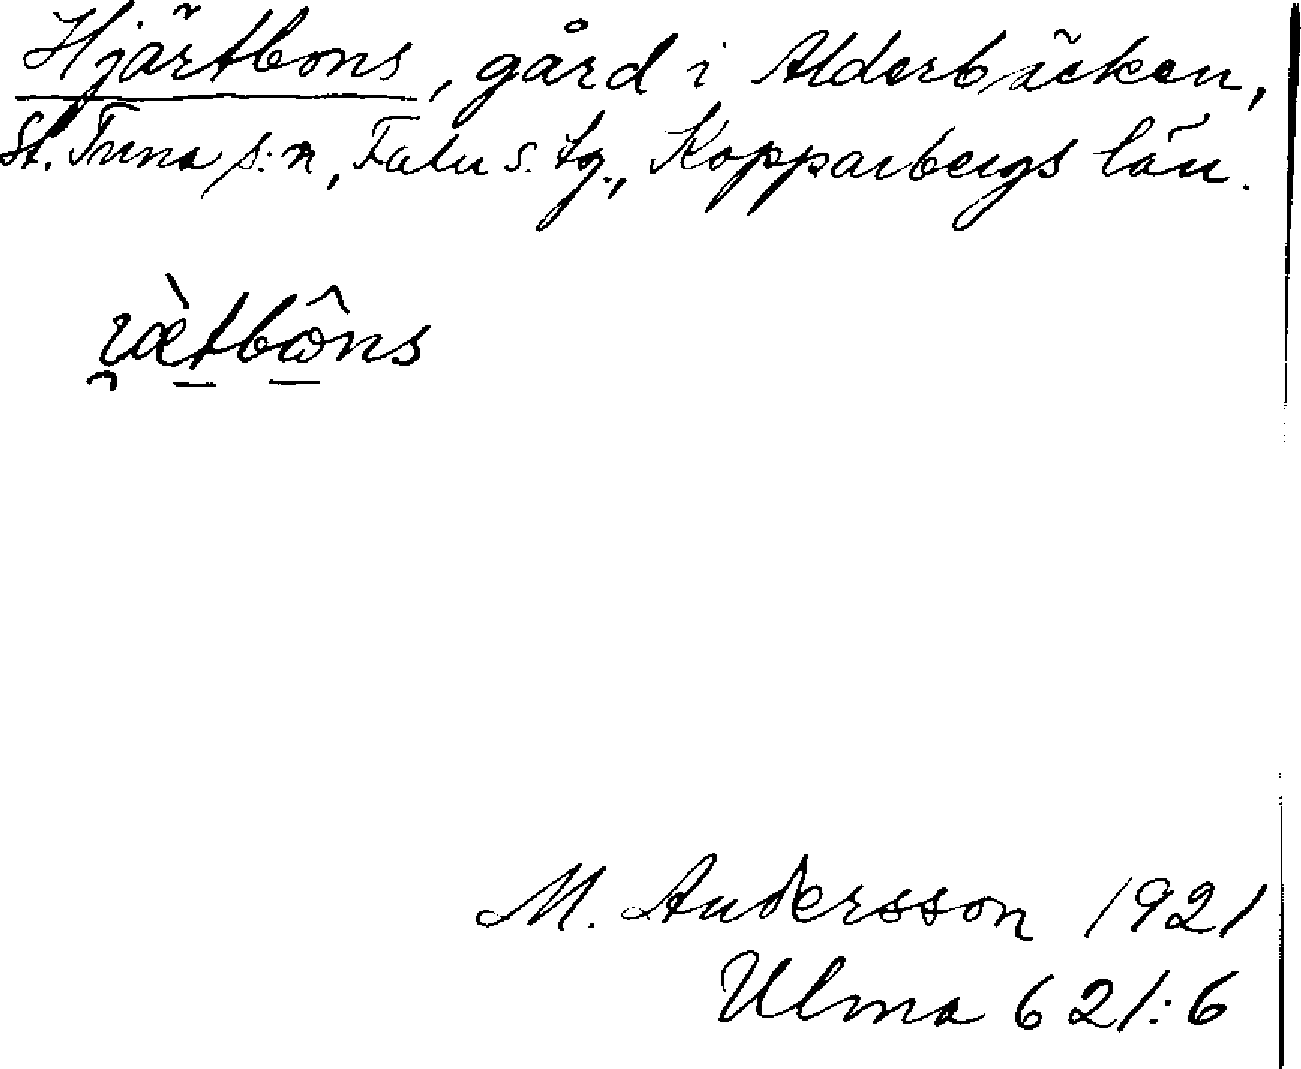 Hjärtbons, gård i Alderbäcken,
St. Tuna s:n, Falu s. tg., Kopparbergs län.
M. Andersson 1921
Ulma 621:6